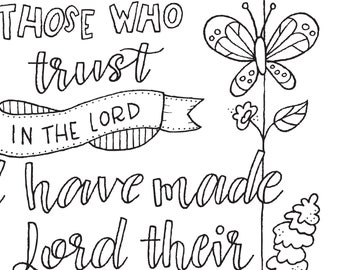 THOSE WHO
trust
IN THE LORD
have made
Lord their